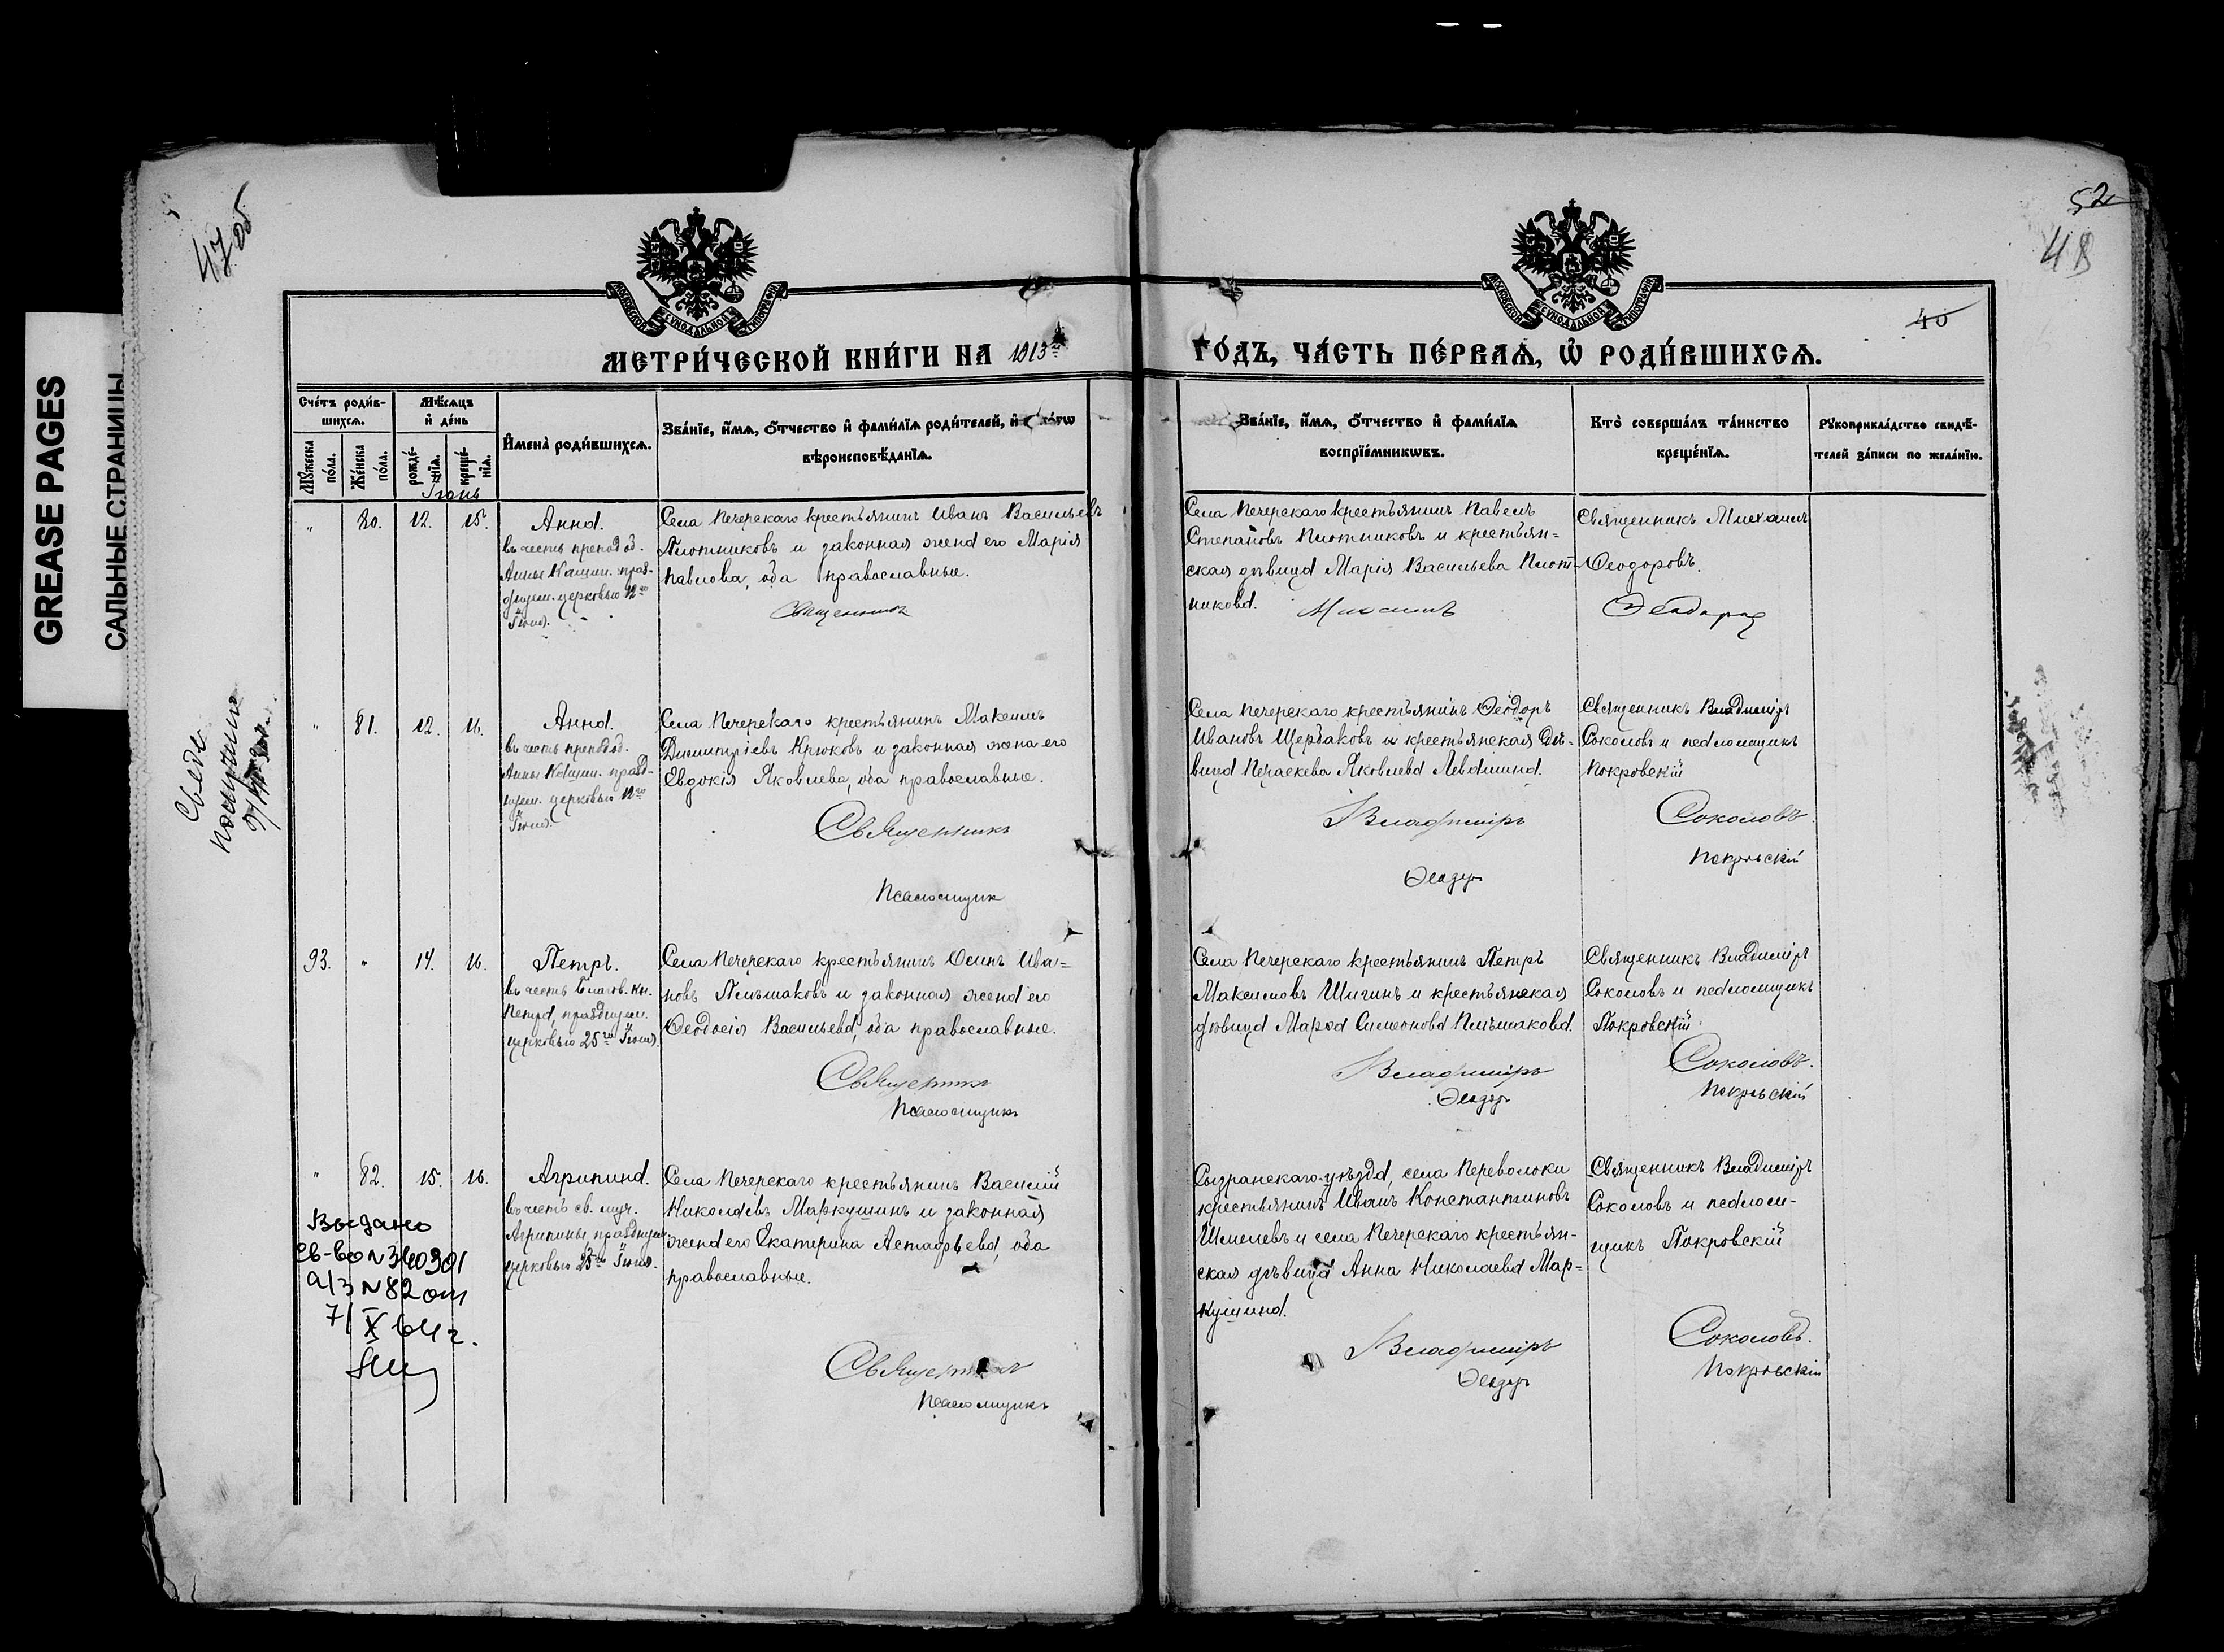 GREASE PAGES
САЛЬНЫЕ СТРАНИЦЫ
47 об
52
48
40
МОСКОВСКОЙ СѴНОДАЛЬНОЙ ТИПОГРАФІИ
МОСКОВСКОЙ СѴНОДАЛЬНОЙ ТИПОГРАФІИ
МЕТРИ́ЧЕСКОЙ КНИ́ГИ НА 1913
ГО́ДЪ, ЧА́СТЬ ПЕ́РВАѦ, Ѡ҆ РОДИ́ВШИХСѦ.
Сче́тъ роди́в-
шихсѧ.
Мѣ́сѧцъ
и҆ де́нь
Мꙋ́жеска
по́ла.
Же́нска
по́ла.
рожде́-
нїѧ.
креще́-
нїѧ.
И҆мена̀ роди́вшихсѧ.
Зва́нїе, и҆́мѧ, ѻ҆́тчество и҆ фами́лїѧ роди́телей, и҆
вѣроисповѣ́данїѧ.
Зва́нїе, и҆́мѧ, ѻ҆́тчество и҆ фами́лїѧ
воспрїе́мникѡвъ.
Кто̀ соверша́лъ та́инство
креще́нїѧ.
Рꙋкоприкла́дство свидѣ́-
телей за́писи по жела́нїю.
Іюнь
" 80. 12. 15.
Анна.
въ честь преподоб.
Анны Кашин. празд-
нуем. церковью 12го
Іюня.
Села Печерскаго крестьянинъ Иванъ Васильевъ
Плотниковъ и законная жена его Марія
Павлова, оба православные.
Священникъ
Села Печерскаго крестьянинъ Павелъ
Степановъ Плотниковъ и крестьян=
ская дѣвица Марія Васильева Плот-
никова.
Михаилъ
Священникъ Михаилъ
Ѳеодоровъ.
Ѳеодоров
" 81. 12. 16.
Анна.
въ честь преподоб.
Анны Кашин. празд-
нуем. церковью 12го
Іюня.
Села Печерскаго крестьянинъ Максимъ
Димитріевъ Крюковъ и законная жена его
Евдокія Яковлева, оба православные.
Священникъ
Псаломщик
Села Печерскаго крестьянинъ Ѳеодоръ
Ивановъ Щербаковъ и крестьянская дѣ-
вица Параскева Яковлева Левашина.
Владиміръ
Ѳеодоръ
Священникъ Владиміръ
Соколовъ и псаломщикъ
Покровскій
Соколовъ.
Покровскій
93. " 14. 16.
Петръ.
въ честь благов. кн.
Петра, празднуем.
церковью 25го Іюня.
Села Печерскаго крестьянинъ Осипъ Ива=
новъ Пальшаковъ и законная жена его
Ѳеодосія Васильева, оба православные.
Священникъ
Псаломщикъ
Села Печерскаго крестьянинъ Петръ
Максимовъ Шигинъ и крестьянская
дѣвица Марѳа Симеонова Пальшакова.
Владиміръ
Ѳеодоръ
Священникъ Владиміръ
Соколовъ и псаломщикъ
Покровскій
Соколовъ.
Покровскій
" 82. 15. 16.
Агрипина.
въ честь св. муч.
Агрипины, празднуем.
церковью 23го Іюня.
Села Печерскаго крестьянинъ Василій
Николаевъ Маркушинъ и законная
жена его Екатерина Астафьева, оба
православные.
Священникъ
Псаломщикъ
Сызранскаго уѣзда, села Переволоки
крестьянинъ Иванъ Константиновъ
Шмелевъ и села Печерскаго крестьян-
ская дѣвица Анна Николаева Мар=
кушина.
Владиміръ
Ѳеодоръ
Священникъ Владиміръ
Соколовъ и псалом-
щикъ Покровскій
Соколовъ.
Покровскій
Выдано
св-во N 340301
а/з N 82 от
7/X 64 г.